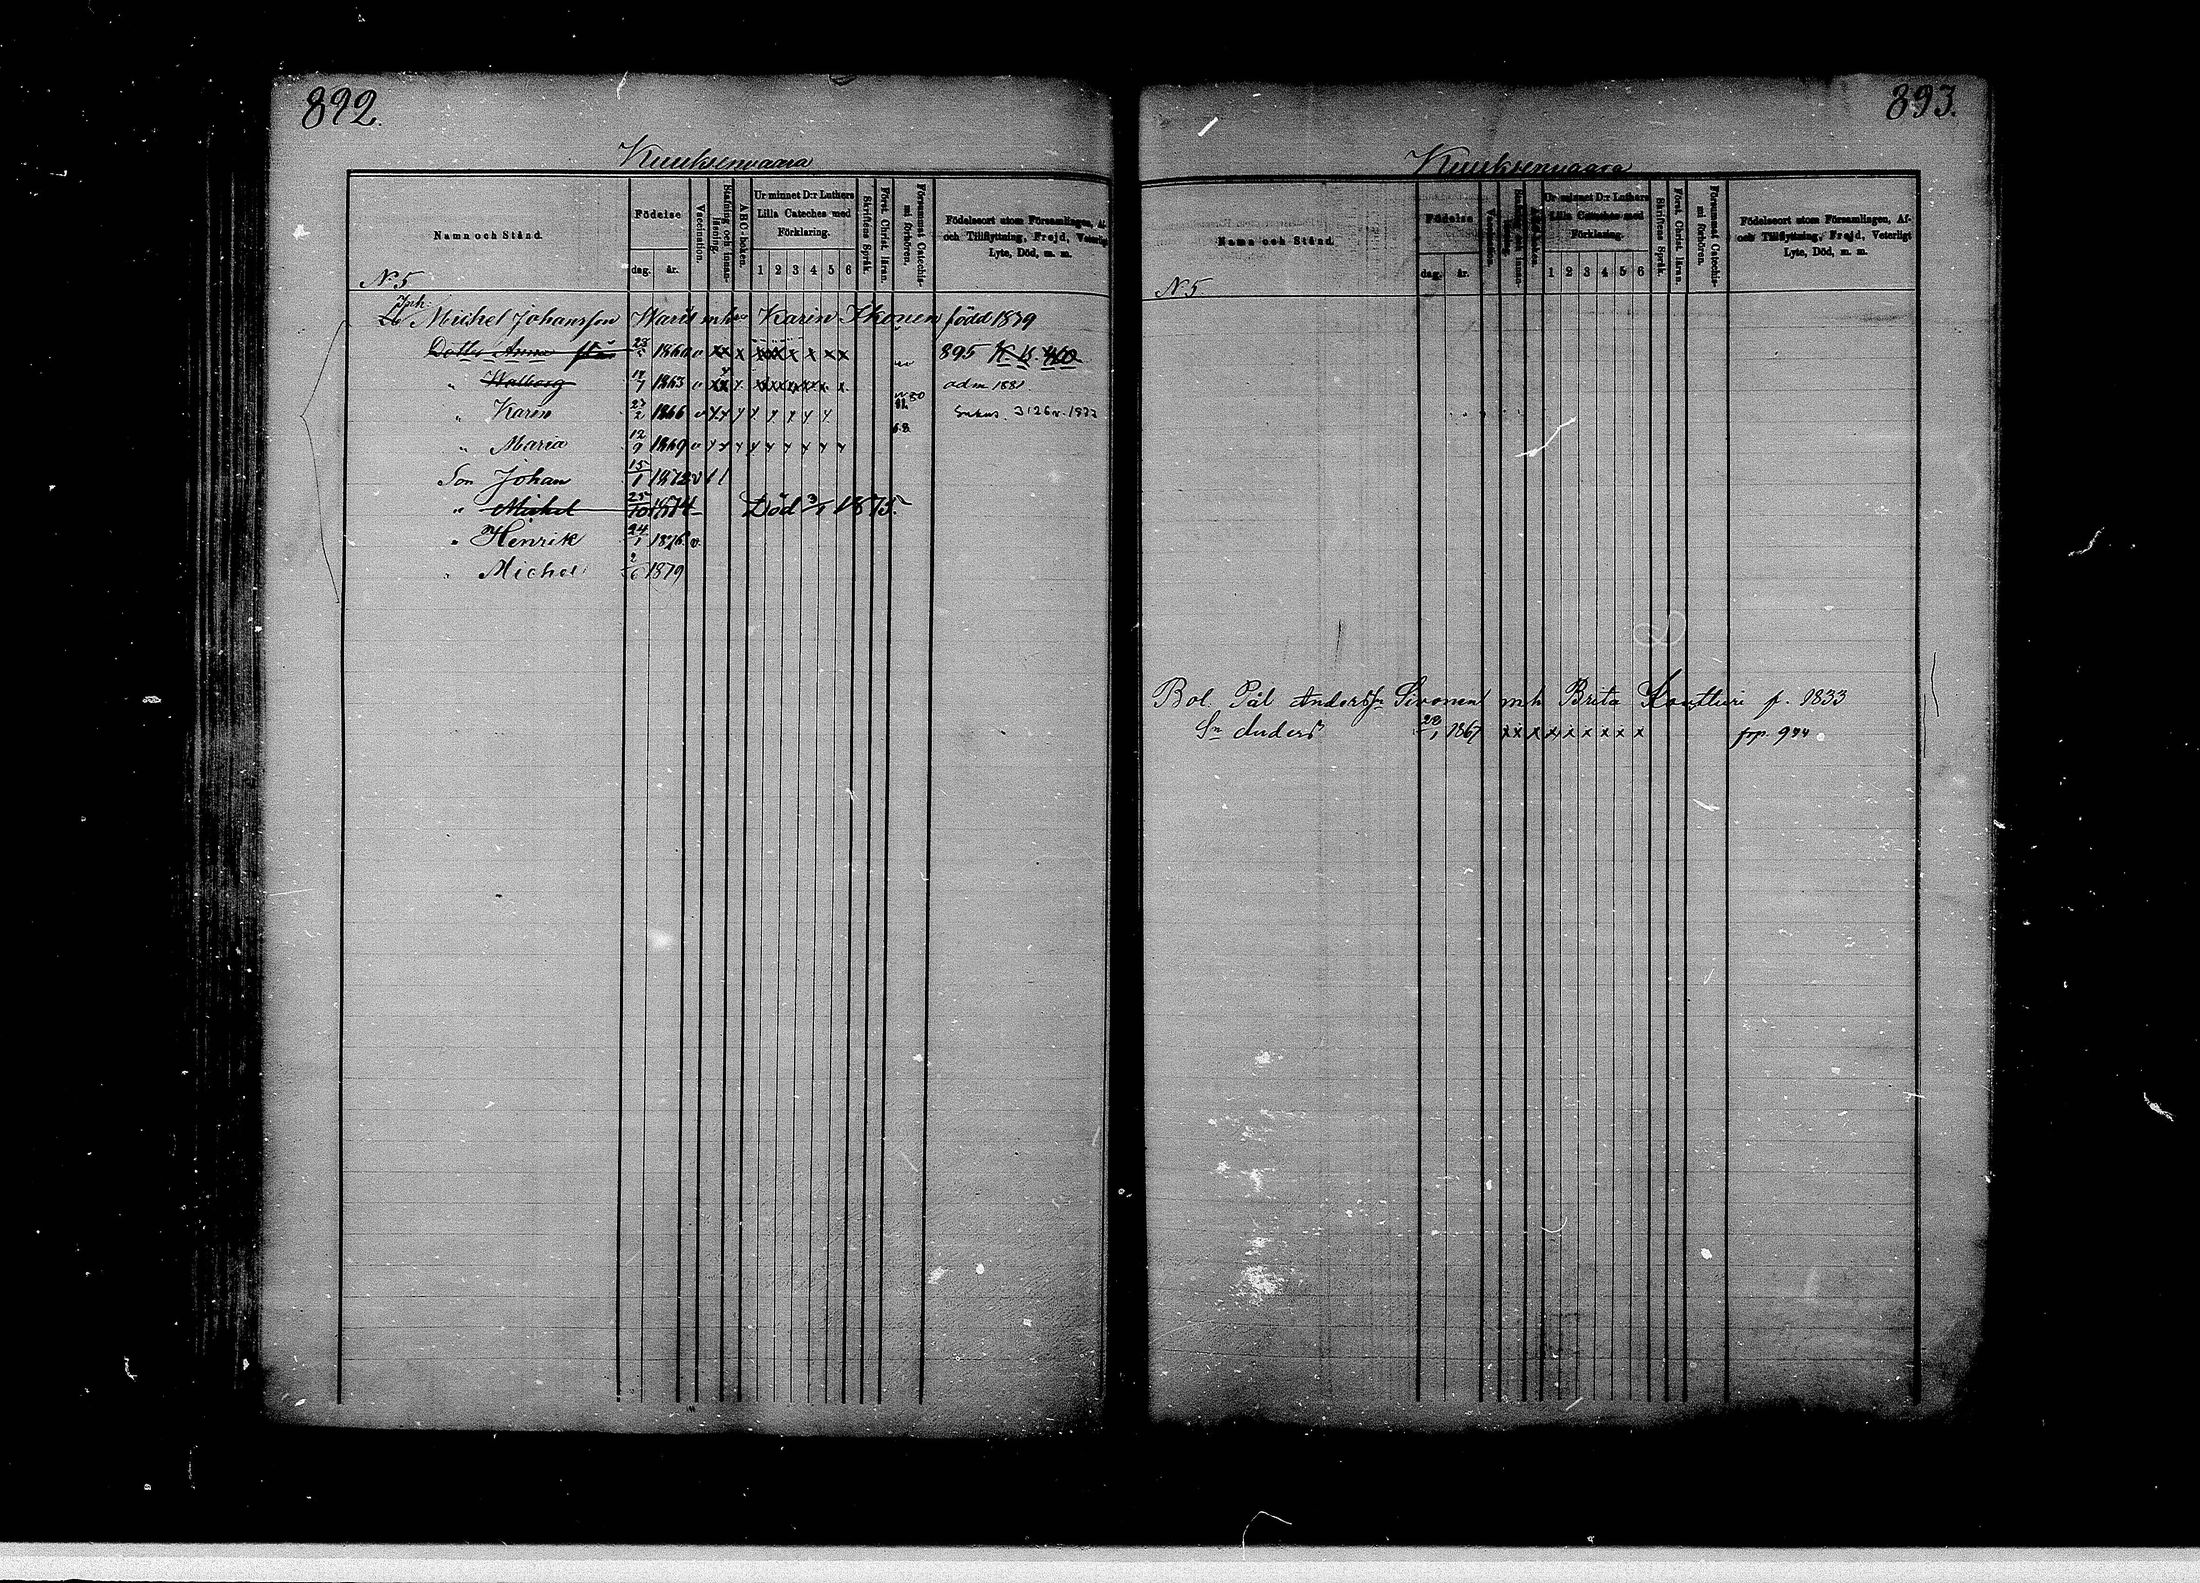 892.
Kuuksenvaara
Namn och Stånd.
Födelse
dag. år.
Vaccination.
Stafning och innanläsning.
A B C-boken.
Ur minnet D:r Luthers Lilla Cateches med Förklaring.
1 2 3 4 5 6
Skriftens Språk.
Först. Christ. läran.
Försummat Catechismi förhören.
Födelseort utom Församlingen, Af- och Tillflyttning, Frejd, Veterligt Lyte, Död, m. m.
N 5
Inh.
Michel Johansson mh Karin Ikonen född 1839
Dottr Anna 1860 v xx x xxx x x x x 895
" Walborg 17/7 1863 v xx x adm 1881
" Karin 27/2 1866 v
" Maria 12/9 1869 v
Son Johan 15/1 1872 v
" Michel 25/10 1874 Död 1875.
" Henrik 24/1 1876 v
" Michel 2/6 1879
893.
Kuuksenvaara
Namn och Stånd.
Födelse
dag. år.
Vaccination.
Ur minnet D:r Luthers Lilla Cateches med Förklaring.
1 2 3 4 5 6
Skriftens Språk.
Först. Christ. läran.
Försummat Catechismi förhören.
Födelseort utom Församlingen, Af- och Tillflyttning, Frejd, Veterligt Lyte, Död, m. m.
N 5
Bol. Pål Anderss Sivonen mh Brita Kontturi f. 1833
Sn Anders 28/1 1867 xx x x x x x x x frp. 944